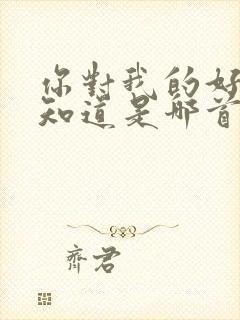 你對我的好
知道是那首
齊君